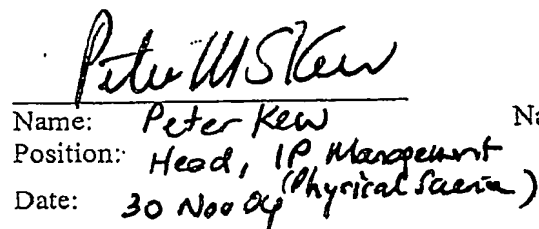 Peter M S Kew
Name: Peter Kew Na
Position: Head, IP Management
(Physical Science)
Date: 30 Nov 04